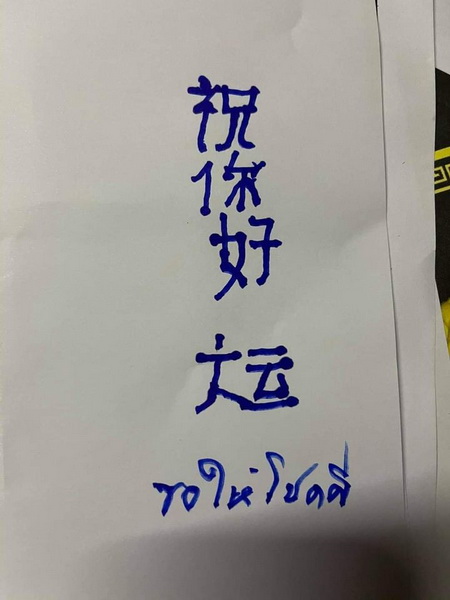 祝
你
好
运
ขอให้โชคดี